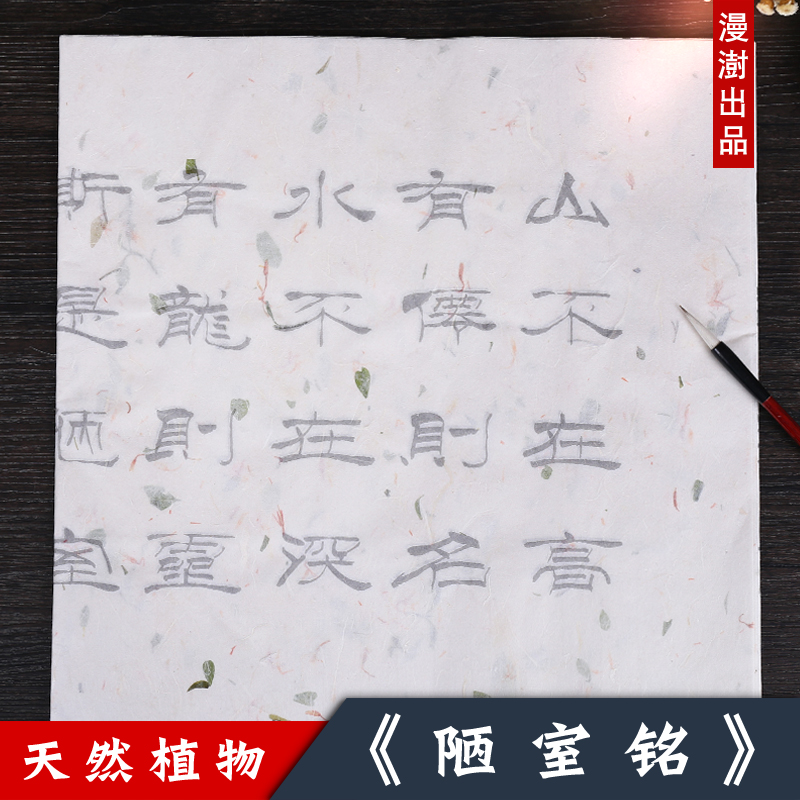 漫澍出品
山不在高
有僊則名
水不在深
有龍則靈
斯是陋室
天然植物
《陋室铭》